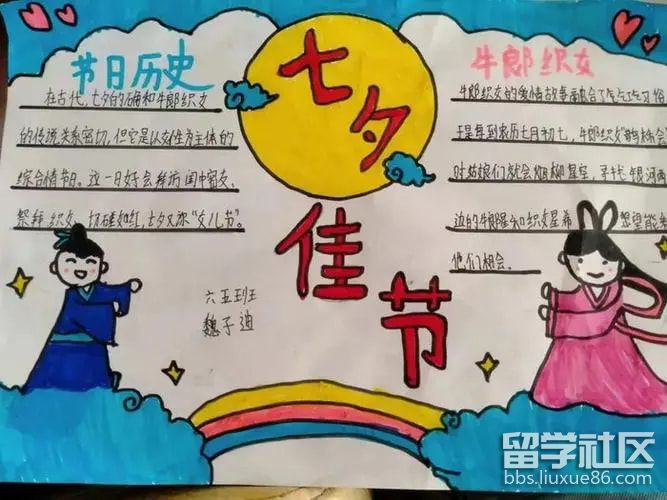 节日历史
在古代，七夕的确和牛郎织女
的传说关系密切，但它是以女性为主体的
综合情节日。这一日好会拜访闺中密友、
祭拜织女、切磋如红，七夕又称“女儿节”。
七夕
佳节
六五班
魏子迪
牛郎织女
牛郎织女的爱情故事融合了乞巧习俗
于是每到农历七月初七，牛郎织女鹊桥会
时姑娘们就会仰柳星空，寻找银河西
边的牛郎星和织女星希望能
他们相会。
留学社区
bbs.liuxue86.com